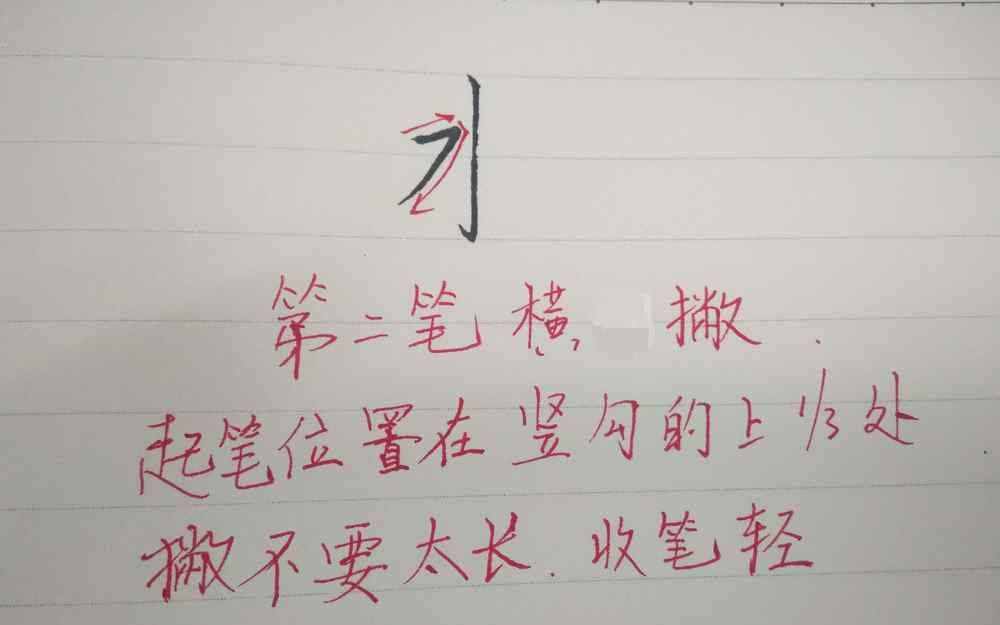 第二笔横撇.
起笔位置在竖勾的上1/3处
撇不要太长.收笔轻